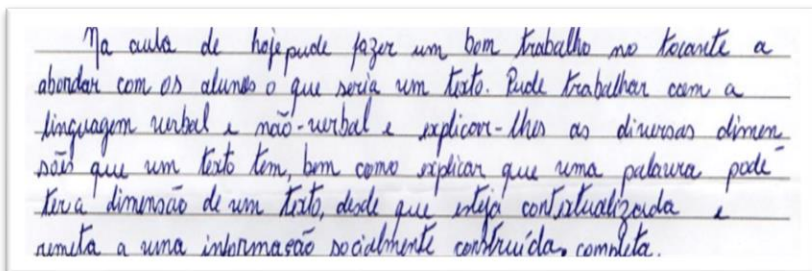 Na aula de hoje pude fazer um bom trabalho no tocante a
abordar com os alunos o que seria um texto. Pude trabalhar com a
linguagem verbal e não-verbal e explicar-lhes as diversas dimen
sões que um texto tem, bem como explicar que uma palavra pode
ter a dimensão de um texto, desde que esteja contextualizada e
remeta a uma informação socialmente construída, completa.